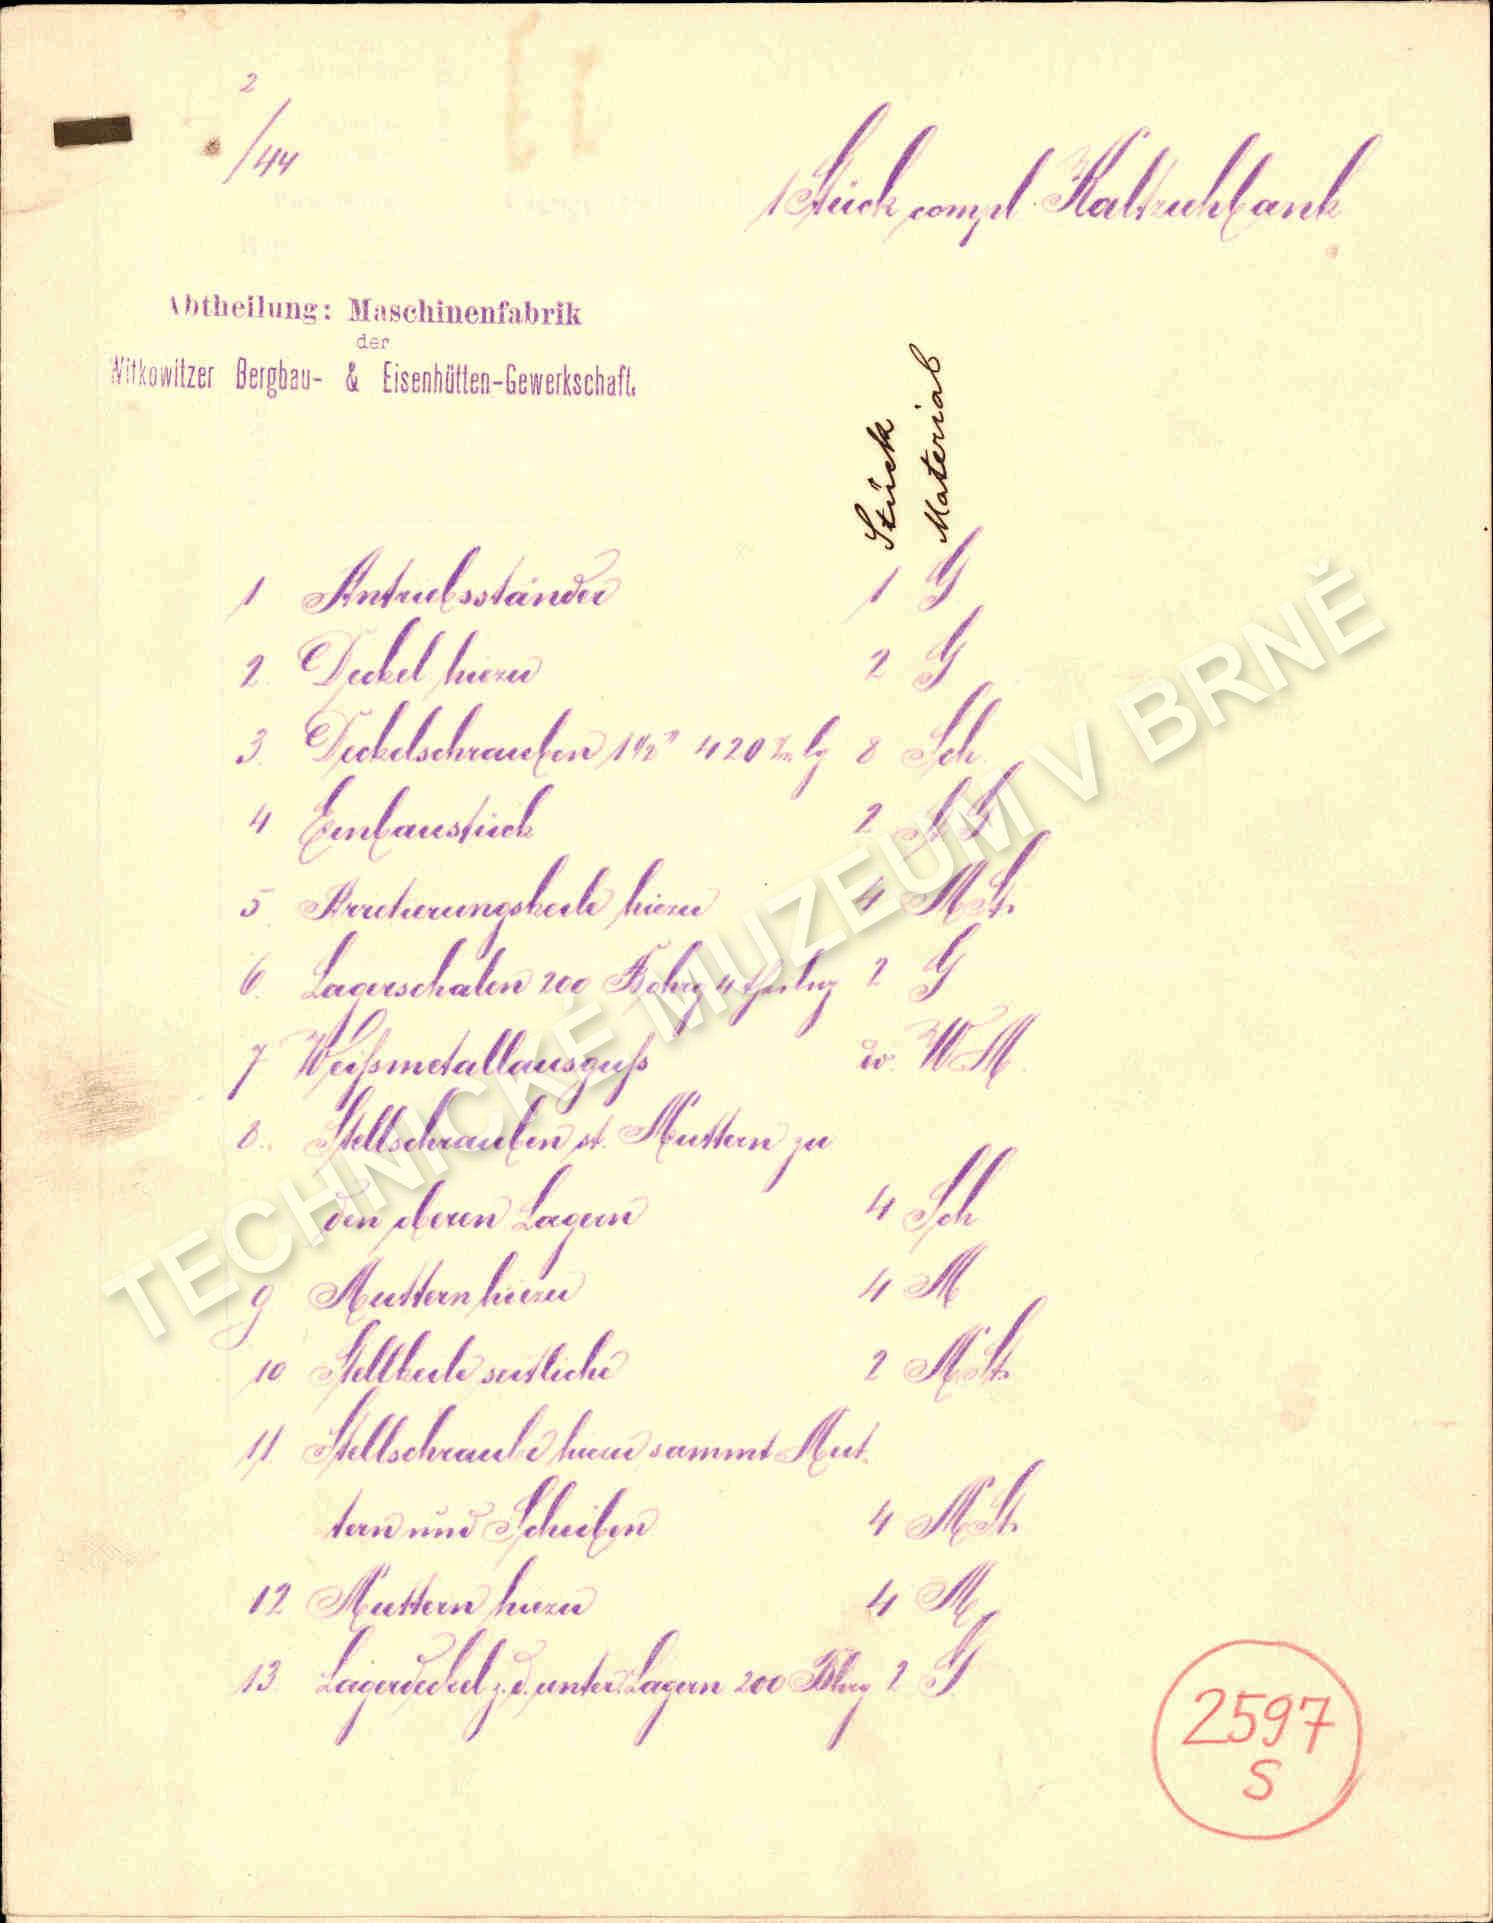 2
/44
1 Stück compl. Kaltziehbank
Abtheilung: Maschinenfabrik
der
Witkowitzer Bergbau- & Eisenhütten-Gewerkschaft.
Stück
Material
1 Antriebsständer 1 G
2. Deckel hiezu 2 G
3. Deckelschrauben 1 1/2" 420 m/m lg 8 Sch.
4 Einbaustück 2 St G
5. Arretierungskeile hiezu 4 M St.
6. Lagerschalen 200 Bohrg 4 theilig 2 G
7 Weißmetallausguß W M.
8. Stellschrauben st. Muttern zu
den oberen Lagern 4 Sch
9 Muttern hiezu 4 M
10 Stellkeile seitliche 2 M St.
11. Stellschraube hiezu sammt Mut-
tern und Scheiben 4 M St.
12 Muttern hiezu 4 M
13. Lagerdeckel z. d. unter. Lagern 200 Bhrg 2 G
2597
S
TECHNICKÉ MUZEUM V BRNĚ